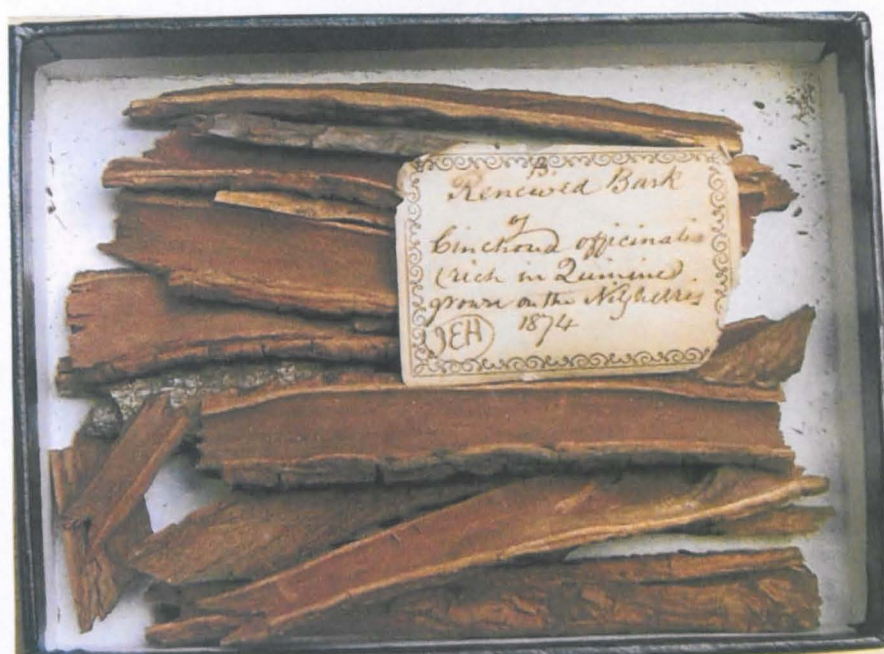 B
Renewed Bark
of
Cinchona officinalis
(rich in Quinine)
grown on the Nilgherris
1874
JEH